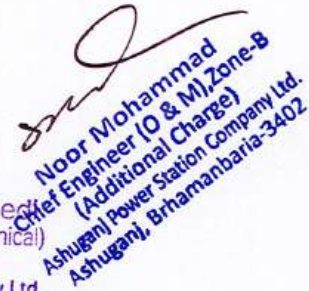 Noor Mohammad
Chief Engineer (O & M),Zone-B
(Additional Charge)
Ashuganj Power Station Company Ltd.
Ashuganj, Brhamanbaria-3402
nical)
y Ltd.